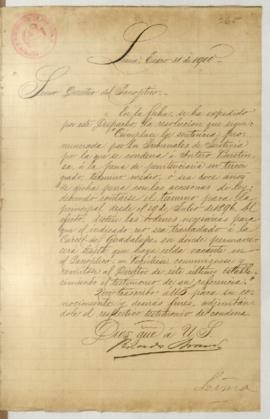 265
Lima, Enero 31 de 1910
Señor Director del Panóptico.
En la fecha, se ha expedido
por este Despacho la resolución que sigue:
"Cúmplase la sentencia pro-
nunciada por los Tribunales de Justicia
por la que se condena á Antero
á la pena de penitenciaría en tercer
grado, término medio, ó sea doce años
de dicha pena con las accesorias de ley,
debiendo contarse el término para la
principal desde el de Julio de Al
efecto, dicten las órdenes necesarias para
que el indicado reo sea trasladado á la
Carcel de Guadalupe en donde permane-
cerá hasta que haya celda vacante en
el Panóptico. Regístrese, comuníquese y
remítase al Director de este último estable-
cimiento el testimonio de su referencia."
Que trascribo á US. para su co-
nocimiento y demás fines, adjuntán-
dole el respectivo testimonio de condena
Dios gue. á U.S.